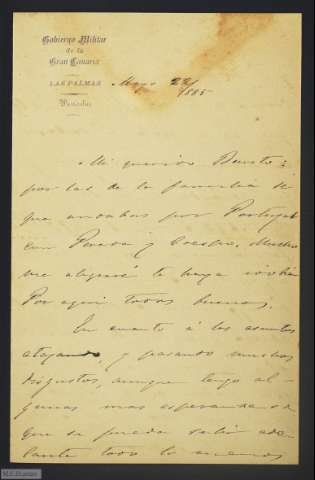 Gobierno Militar
de la
Gran Canaria
LAS PALMAS
Particular
Mayo 22/
1885
Mi querido Benito:
por las de la familia sé
que andabas por Portugal
con Pereda y Crespo. Mucho
me alegraré te haya ido bien
Por aquí todos buenos.
En cuanto á los asuntos
atajando, y pasando muchos
disgustos, aunque tengo al-
gunas mas esperanzas de
que se pueda salir ade-
lante todo lo menos